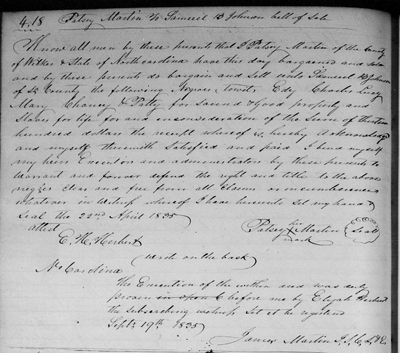 418 Patsy Martin to Samuel B Johnson bill of Sale
Know all men by these presents that I Patsy Martin of the County
of Wilkes & State of North carolina have this day bargained and sold
and by these presents do bargain and Sell unto Samuel B Johnson
of Sd County the following Negroes Edy Charles Lucy
Mary Chaney & Patsy for Sound & Good property and
Slaves for life for and in consideration of the Sum of thirteen
hundred dollars the receipt whereof is hereby Acknowledged
and myself therewith Satisfied and paid I bind myself
my heirs Executors and administrators by these presents to
Warrant and forever defend the right and title to the above
negroes Clear and free from all Claims or incumbrances
whatever in witness whereof I have hereunto Set my hand &
Seal the 22nd April 1835
attest Patsy her X mark Martin Seal
E. H. Herbert
words on the back
No Carolina
the Execution of the within was duly
proven in open C before me by Elijah
the subscribing witness let it be registered
Sept 19th 1835
James Martin J.S.C.L.E.